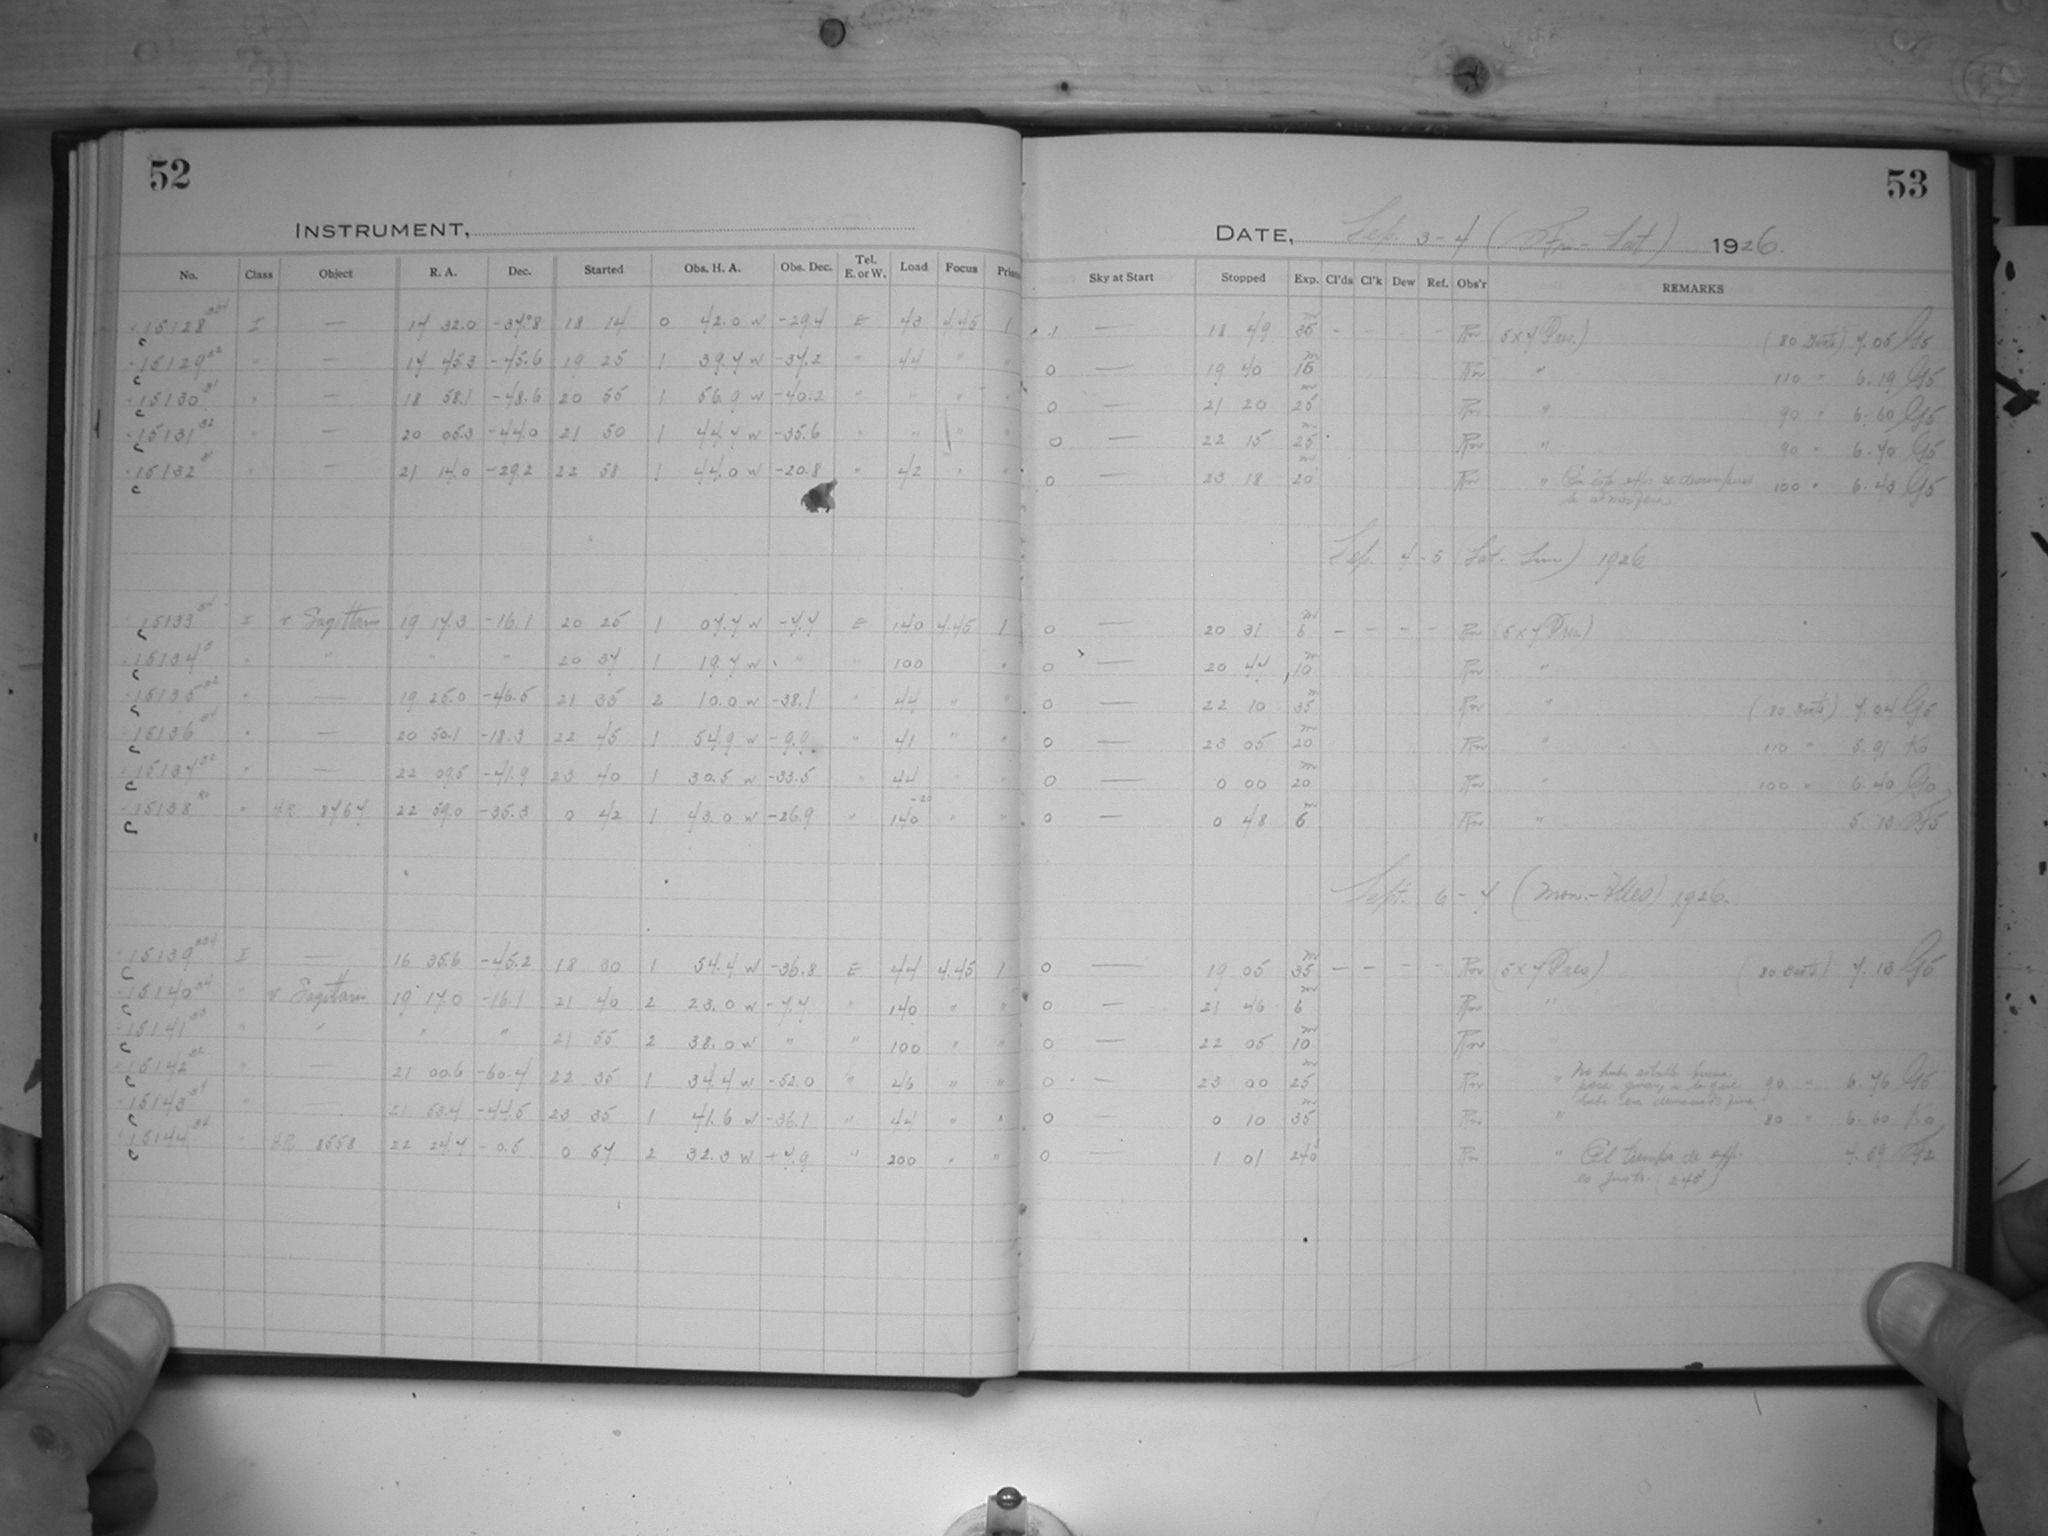 52
INSTRUMENT,
No. Class Object R. A. Dec. Started Obs. H. A. Obs. Dec. Tel. E. or W. Load Focus
15128 I — 17 32.0 -37.8 18 14 0 42.0 W -29.4 E 43 4.45 1
15129 " — 17 45.3 -45.6 19 25 1 39.7 W -37.2 " 44 " "
15130 " — 18 58.1 -48.6 20 55 1 56.9 W -40.2 " " " "
15131 " — 20 05.3 -44.0 21 50 1 44.7 W -35.6 " " " "
15132 " — 21 14.0 -29.2 22 58 1 44.0 W -20.8 " 42 " "
15133 I υ Sagittarii 19 17.3 -16.1 20 25 1 07.7 W -7.7 E 140 4.45 1
15134 " " " " 20 37 1 19.7 W " " 100 "
15135 " — 19 25.0 -46.5 21 35 2 10.0 W -38.1 " 44 " "
15136 " — 20 50.1 -18.3 22 45 1 54.9 W -9.9 " 41 " "
15137 " — 22 09.5 -41.9 23 40 1 30.5 W -33.5 " 44 " "
15138 " H.R. 8767 22 59.0 -35.3 0 42 1 43.0 W -26.9 " 140 " "
15139 I — 16 35.6 -45.2 18 30 1 54.4 W -36.8 E 44 4.45 1
15140 " υ Sagittarii 19 17.0 -16.1 21 40 2 23.0 W -7.7 " 140 " "
15141 " " " " 21 55 2 38.0 W " " 100 " "
15142 " — 21 00.6 -60.4 22 35 1 34.4 W -52.0 " 46 " "
15143 " — 21 53.4 -44.5 23 35 1 41.6 W -36.1 " 44 " "
15144 " H.R. 8558 22 24.7 -0.5 0 57 2 32.3 W +7.9 " 200 " "
53
DATE, Sep. 3-4 (Fri-Sat) 1926.
Sky at Start Stopped Exp. Cl'ds Cl'k Dew Ref. Obs'r REMARKS
— 18 49 35 m – – – – (5x7 Pres.) 7.05 G5
0 — 19 40 15 m " 110 " 6.19 G5
0 — 21 20 25 m " 90 " 6.60 G5
0 — 22 15 25 m " 90 " 6.70 G5
0 — 23 18 20 m " 100 " 6.43 G5
Sep. 4-5 (Sat-Sun) 1926
0 — 20 31 6 m – – – – (5x7 Pres)
0 — 20 47 10 m "
0 — 22 10 35 m " 7.04 G5
0 — 23 05 20 m " 110 " 5.91 K0
0 — 0 00 20 m " 100 " 6.40 G0
0 — 0 48 6 m " 5.13
Sept. 6-7 (Mon.-Tues) 1926.
0 — 19 05 35 m – – – – (5x7 Pres) 7.13 G5
0 — 21 46 6 m "
0 — 22 05 10 m "
0 — 23 00 25 m " No hubo estrella buena para guiar, 90 " 6.76 G5
0 — 0 10 35 m " 80 " 6.60 K0
0 — 1 01 240 s " El tiempo de exp. es justo. (240s) F2